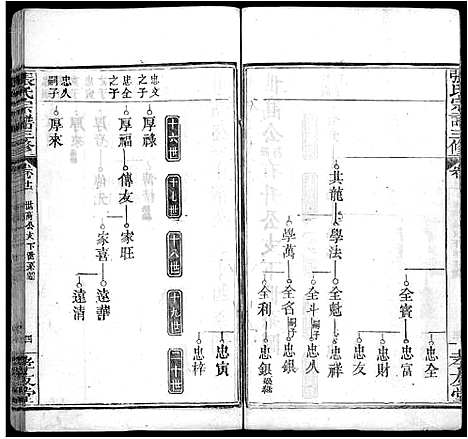 張氏宗譜三修
卷廿
孝友堂
忠全
全賓 忠富
忠財
忠友
其龍 學法 全魁 忠祥
全斗 嗣子 忠久
學萬 全名 嗣子 忠銀
全利 忠銀
忠寅
忠梓
十六世 十七世 十八世 十九世 二十世
忠文之子 厚祿
忠全之子 厚福 傳友 家旺
家喜 遠華
遠清
忠久嗣子 厚來
張氏宗譜三修
卷廿
四
孝友堂